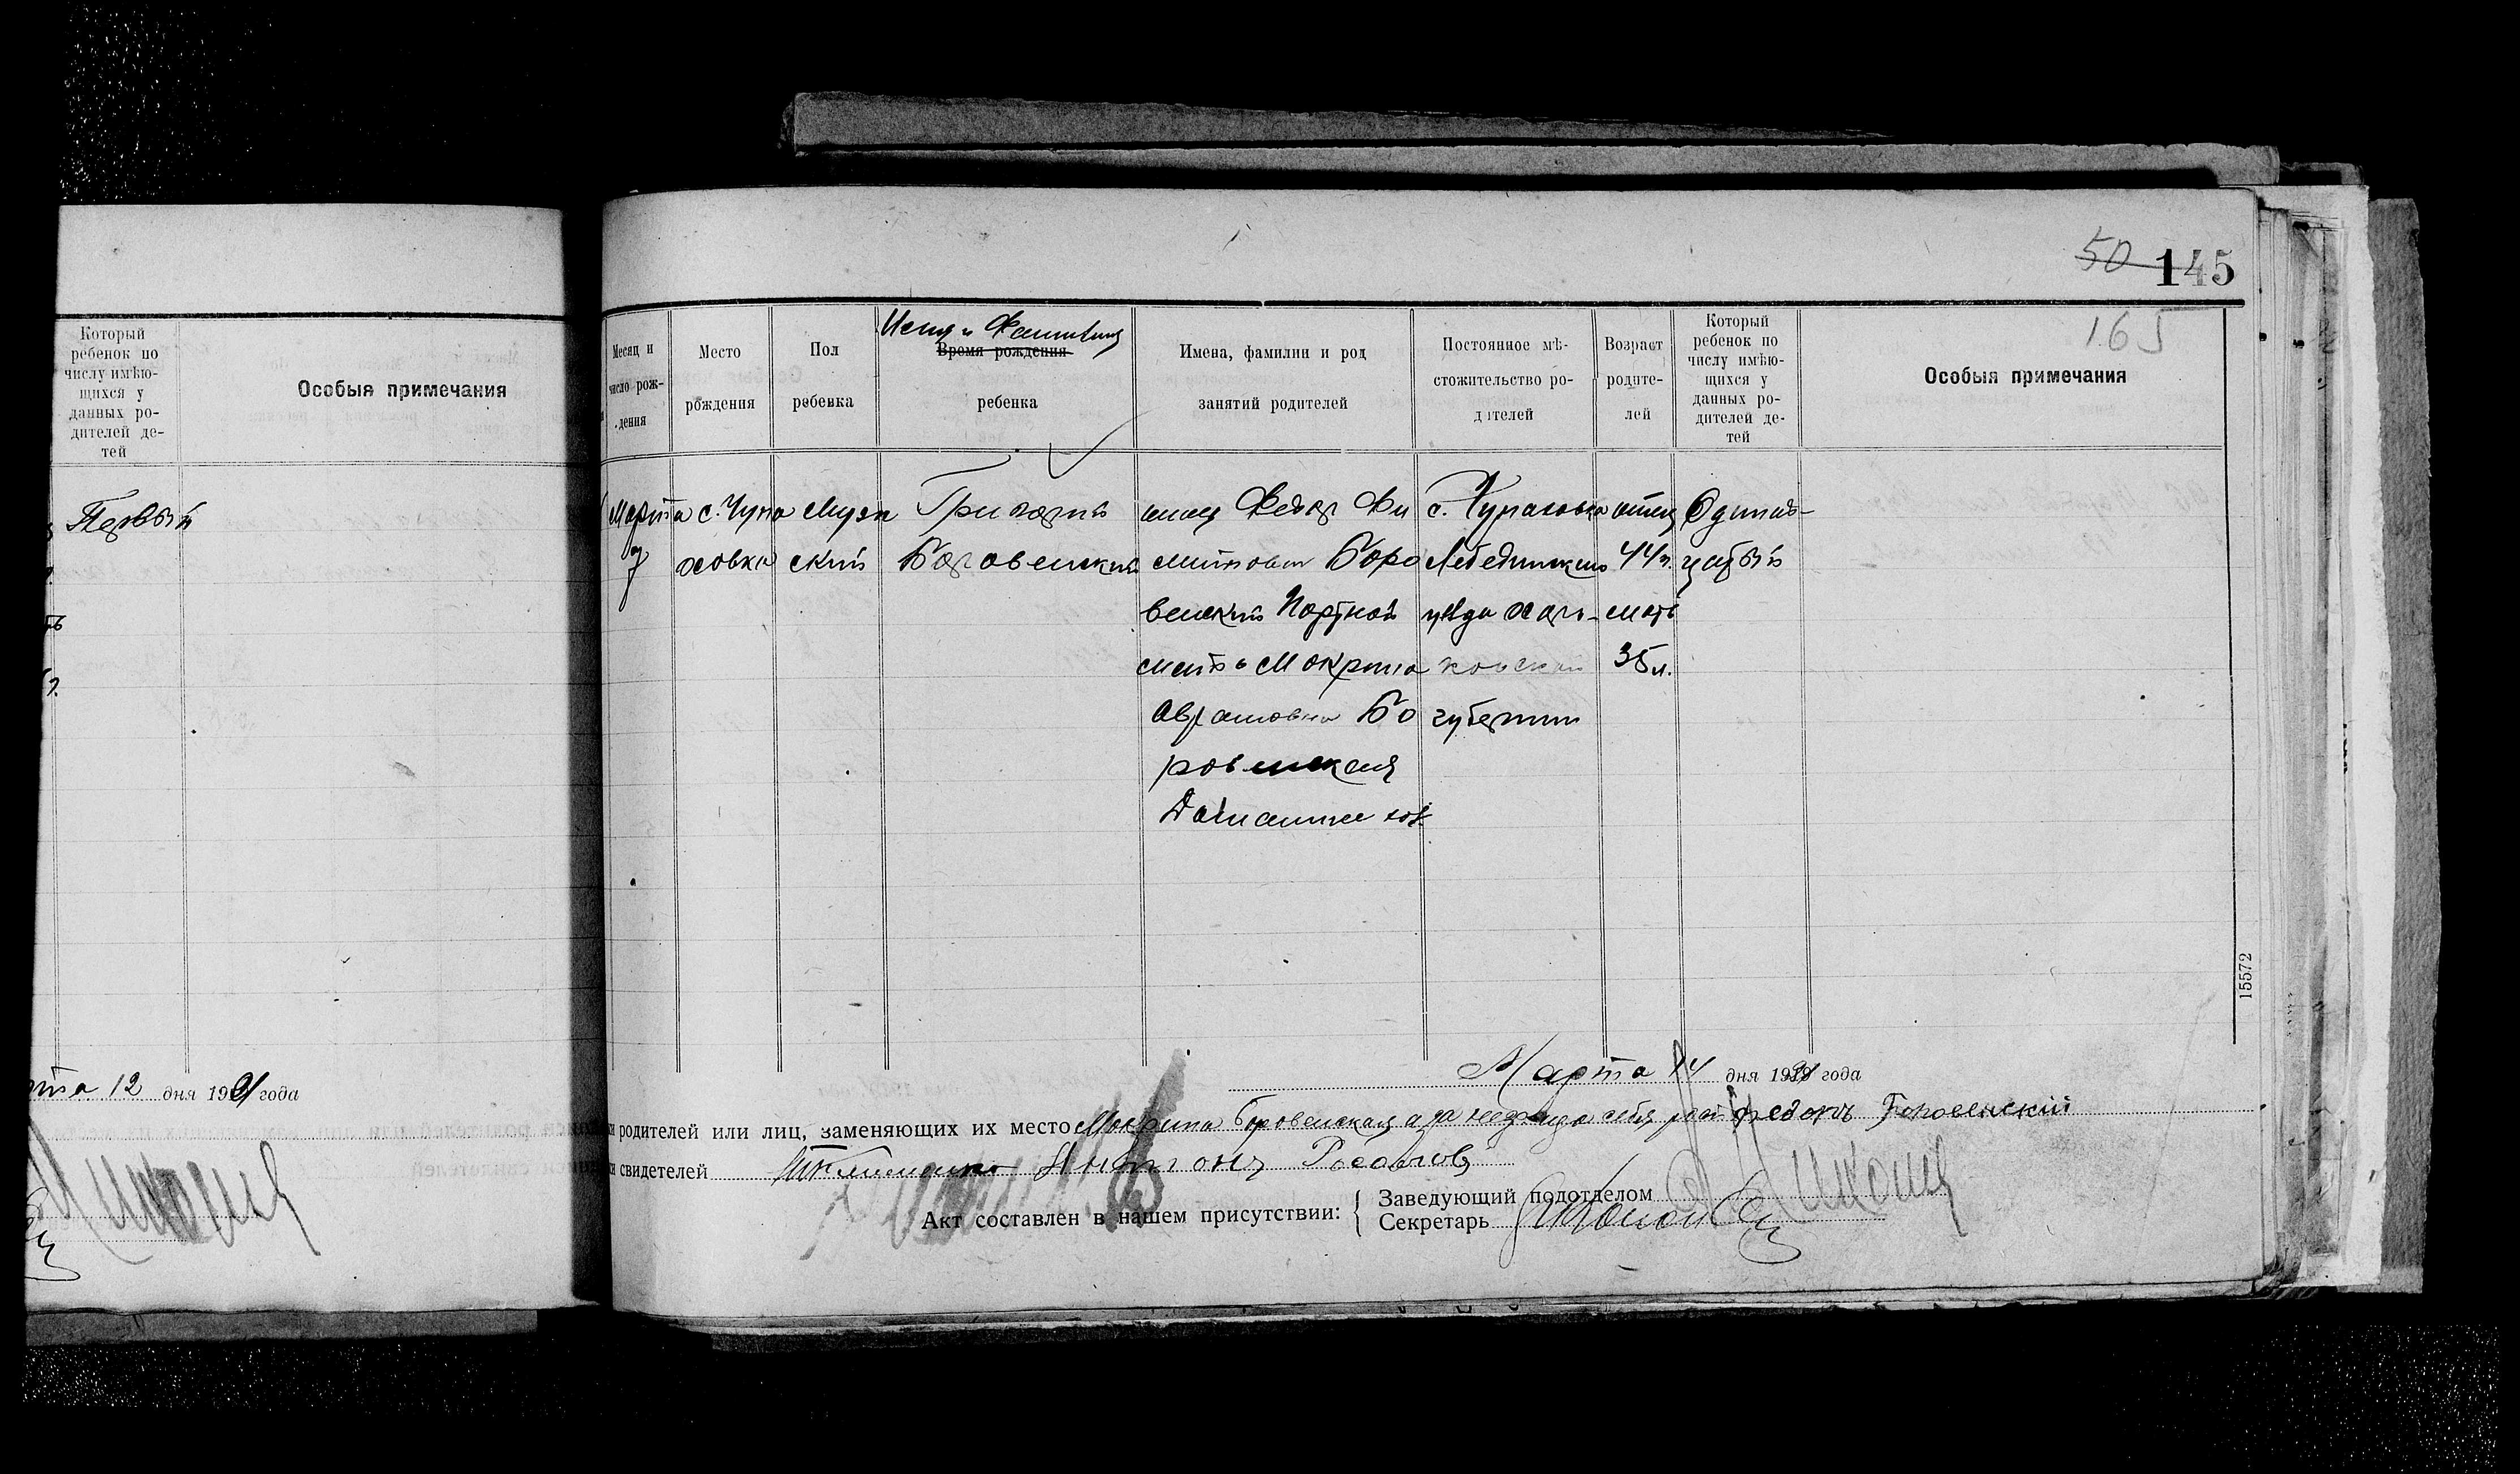 50 145
165
Который
ребенок по
числу имѣю-
щихся у
данных ро-
дителей де-
тей
Особыя примечания
Первый
12 дня 1921 года
Месяц и
число рож-
дения
Место
рождения
Пол
ребенка
Имя и Фамилия
Время рождения
ребенка
Имена, фамилии и род
занятий родителей
Постоянное мѣ-
стожительство ро-
дителей
Возраст
родите-
лей
Который
ребенок по
числу имѣю-
щихся у
данных ро-
дителей де-
тей
Особыя примечания
Марта
7
с. Чупа
ховка
Муж
ский
Григорий
Боровенский
отец Федор Фи
Боро
венский Портной
мать Мокрина
Аврамовна Бо
ровенская
Домашнее хоз.
с. Чупаховка
Лебединского
уезда Харь-
ковской
губернии
отец
44 л.
мать
35 л.
Одинад-
цатый
15572
Марта 14 дня 1921 года
родителей или лиц, заменяющих их место Мокрина Боровенская а за неграмотну Боровенскій
свидетелей
Акт составлен в нашем присутствии:
Заведующий подотделом
Секретарь